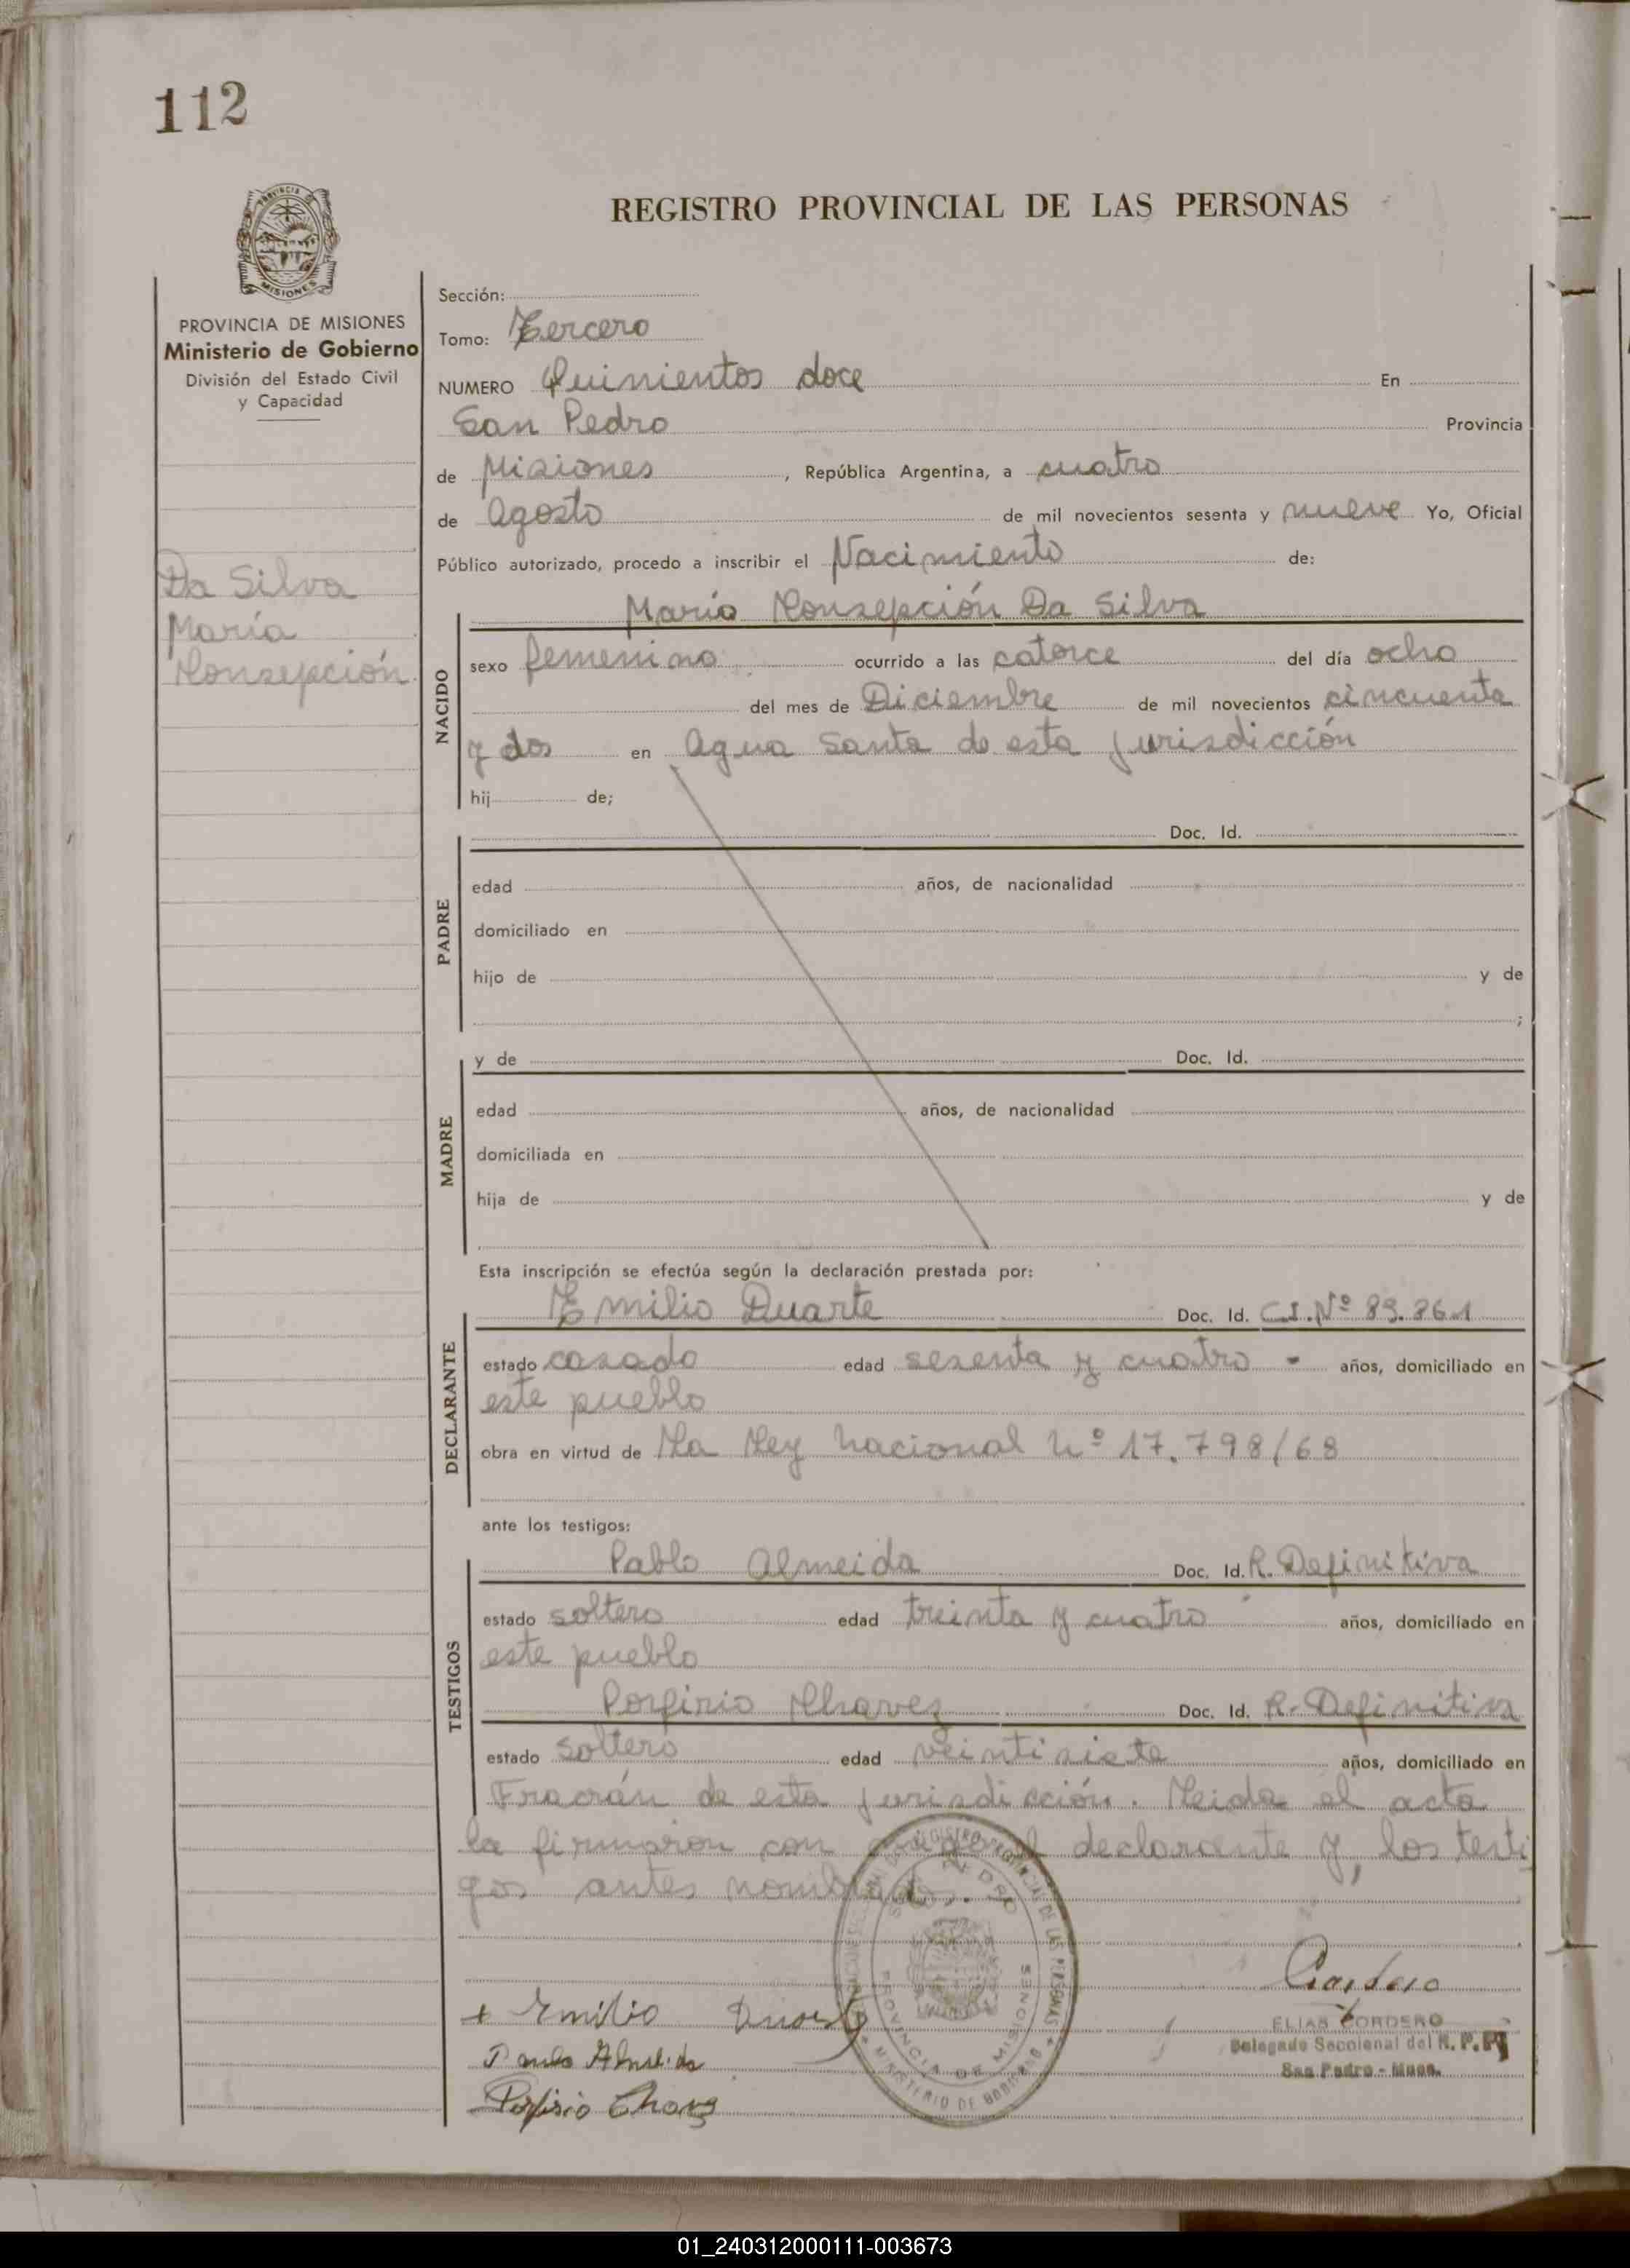 112
REGISTRO PROVINCIAL DE LAS PERSONAS
PROVINCIA
MISIONES
PROVINCIA DE MISIONES
Ministerio de Gobierno
División del Estado Civil
y Capacidad
Da Silva
María
Consepción
Sección:
Tomo: Tercero
NUMERO Quinientos doce En
San Pedro Provincia
de Misiones, República Argentina, a cuatro
de Agosto de mil novecientos sesenta y nueve Yo, Oficial
Público autorizado, procedo a inscribir el Nacimiento de:
María Consepción Da Silva
NACIDO
sexo femenino ocurrido a las catorce del día ocho
del mes de Diciembre de mil novecientos cincuenta
y dos en Agua Santa de esta jurisdicción
hij de;
PADRE
Doc. Id.
edad años, de nacionalidad
domiciliado en
hijo de y de
;
MADRE
y de Doc. Id.
edad años, de nacionalidad
domiciliada en
hija de y de
Esta inscripción se efectúa según la declaración prestada por:
DECLARANTE
Emilio Duarte Doc. Id. C.I. Nº 89.861
estado casado edad sesenta y cuatro - años, domiciliado en
este pueblo
obra en virtud de La Ley Nacional Nº 17.798/68
ante los testigos:
TESTIGOS
Pablo Almeida Doc. Id. R. Definitiva
estado soltero edad treinta y cuatro años, domiciliado en
este pueblo
Porfirio Chavez Doc. Id. R. Definitiva
estado soltero edad veintisiete años, domiciliado en
Fracrán de esta jurisdicción. Leida el acta
la firmaron con el declarante y, los testi
gos antes nombrados.
REGISTRO PROVINCIAL DE LAS PERSONAS
SAN PEDRO
PROVINCIA DE MISIONES
MINISTERIO DE GOBIERNO
Cordero
+ Emilio Duarte
ELIAS CORDERO
Delegado Seccional del R. P. P.
San Pedro - Mnes.
Porfirio Chavez
01_240312000111-003673